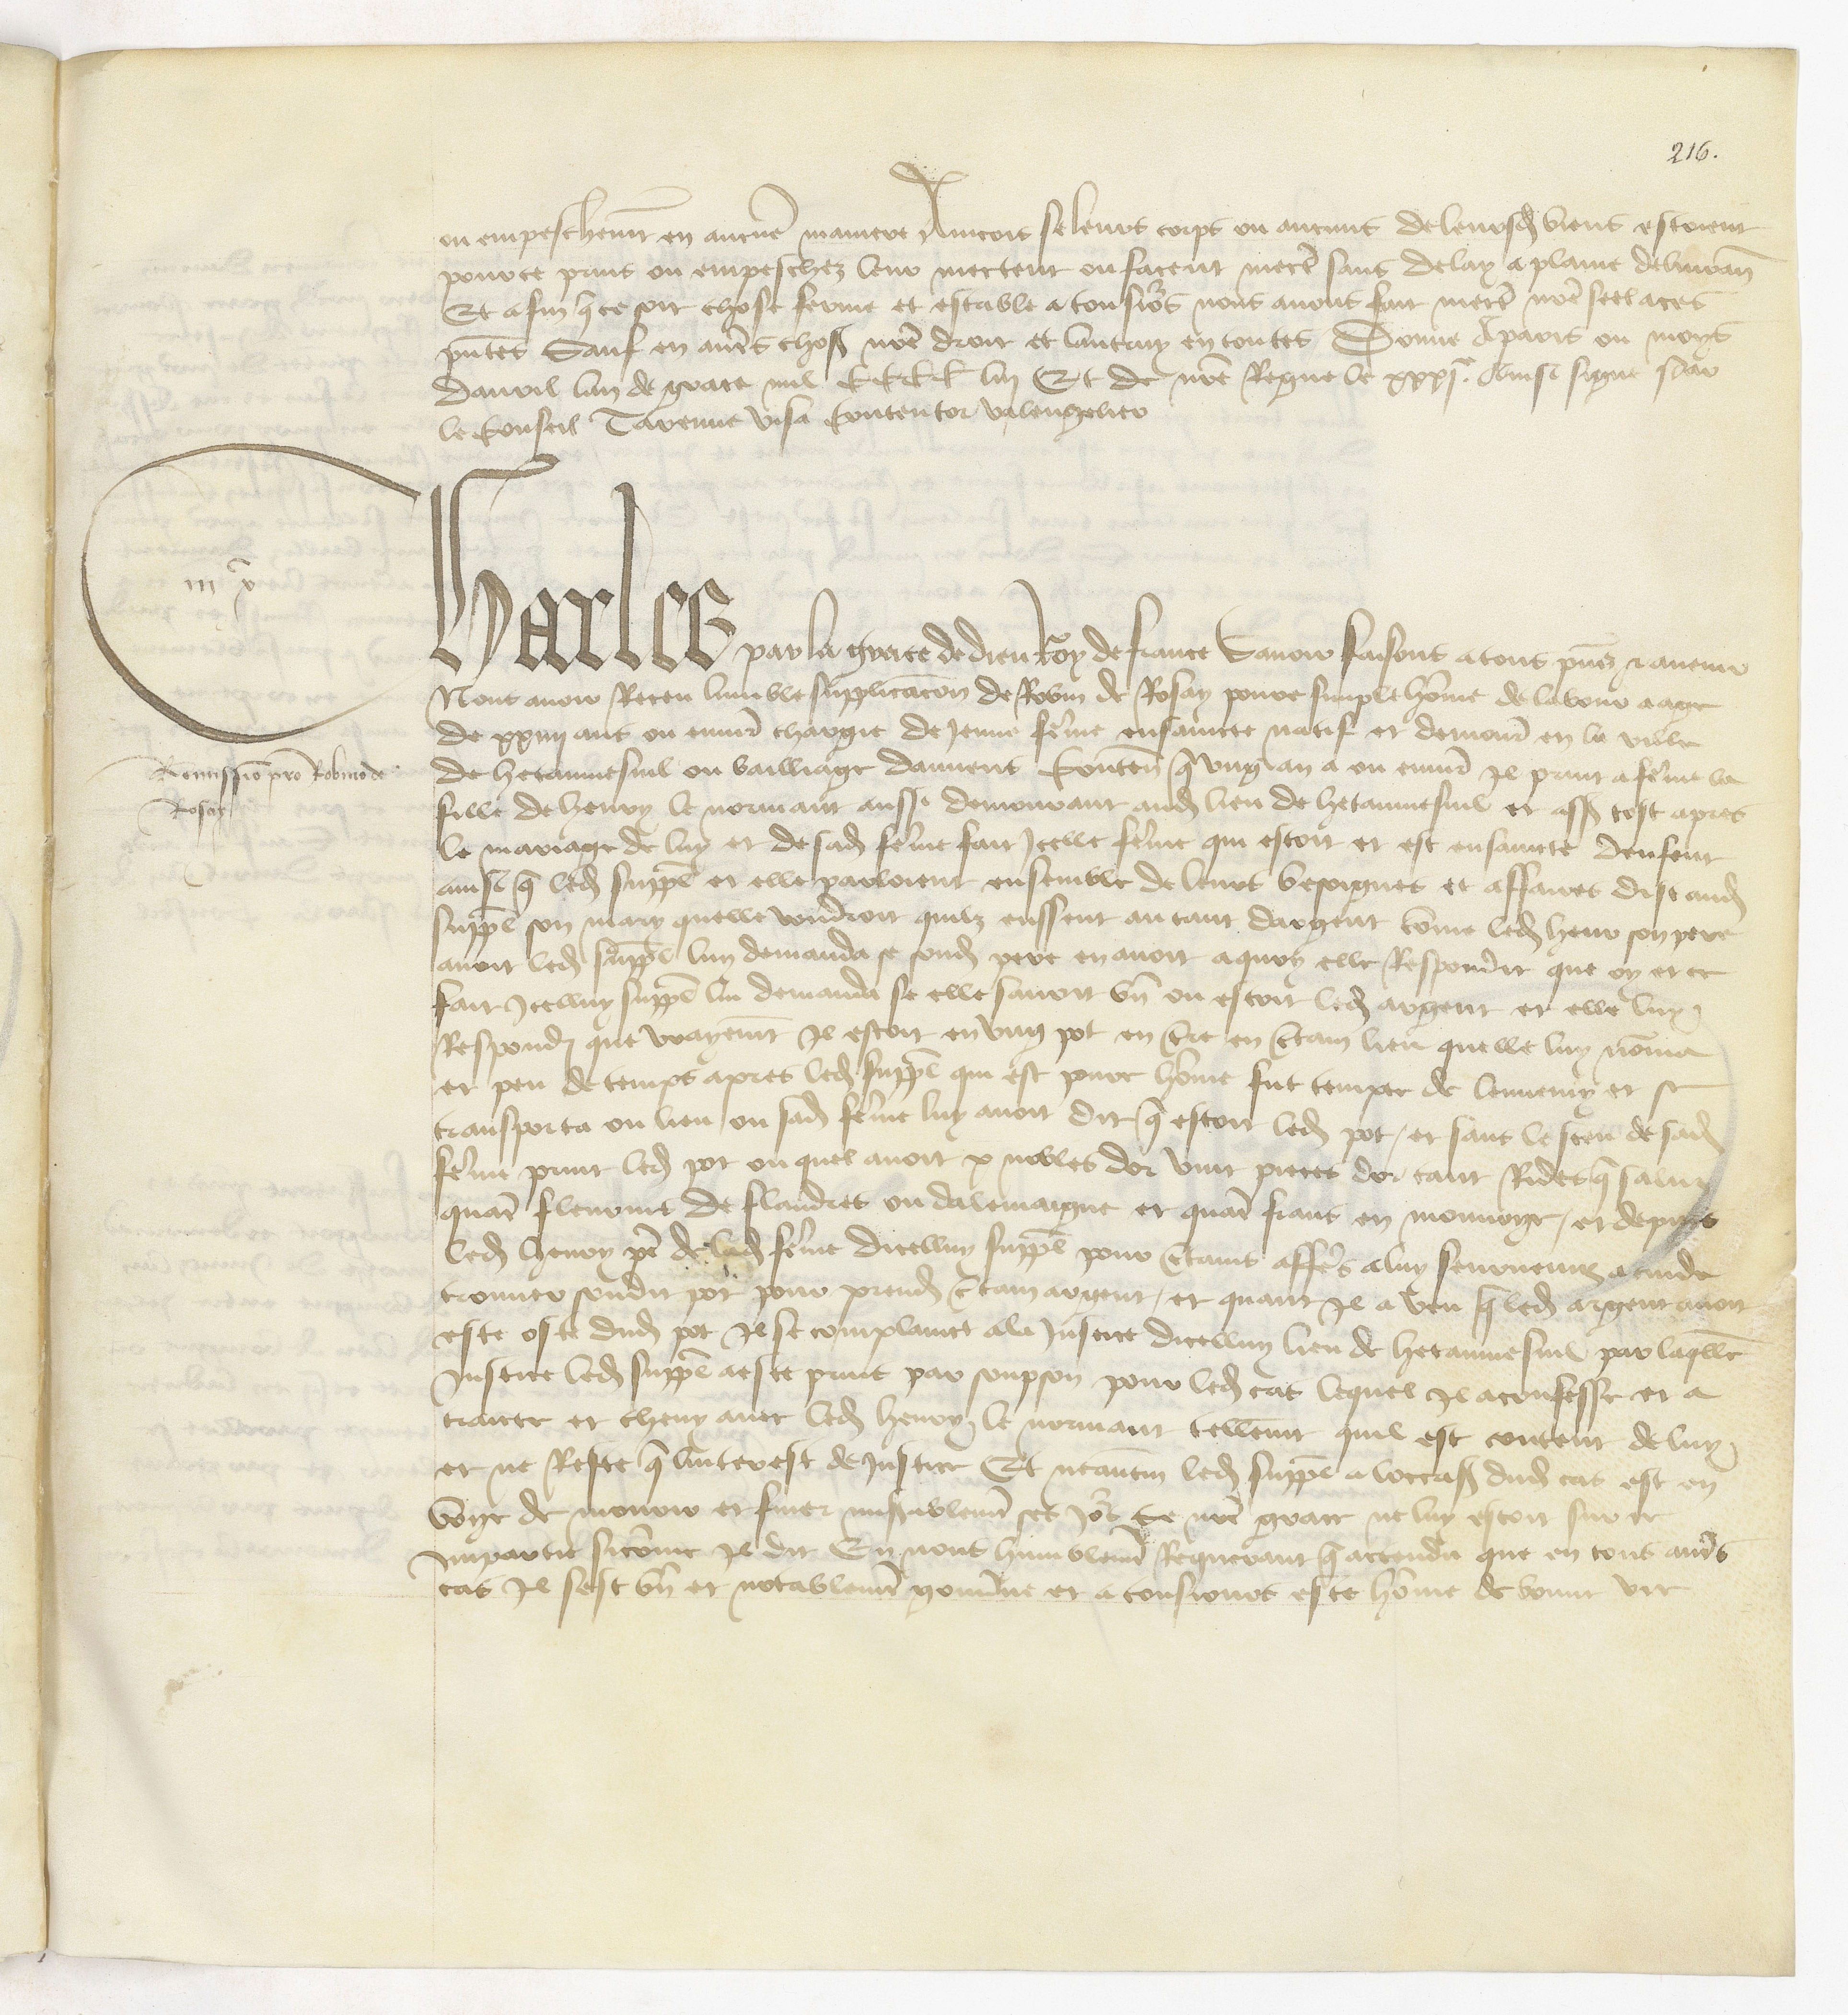 216.
ou empeschemt en aucune maniere Aincois se leurs corps ou aucuns de leursd biens estoient
pour ce prins ou empeschez leur mectent ou facent mectre sans delay a plaine delivran
Et afin q ce soit chose ferme et estable a tousiors nous avons fait mectre nre seel a ces
pntes Sauf en autres choses nre droit et lautruy en toutes Donne A paris ou moys
davril lan de grace mil CCCC liii Et de nre Regne le xxxje. Ainsi signe par
le Conseil Tarenne visa Contentor valengelier
iii c x
Charles par la grace de dieu Roy de france Savoir faisons a tous pns et avenir
Nous avoir Receu lumble supplicacon de Robin de Rosay povre simple homme de labour aage
de xxiiij ans ou environ chargie de jeune femme ensaincte natif et demourant en la ville
de hetannesnil ou bailliage damiens Contenant q ung an a ou environ Il print a femme la
Remissio pro Robino de
Rosay
fille de henry le normant aussi demourant aud lieu de hetannesnil et assez tost apres
le mariage de luy et de sad femme fait Icelle femme qui estoit et est ensaincte denfent
ainsi q led suppl et elle parloient ensemble de leurs besoignes et affaires dist aud
suppl son mary quelle vouldroit quilz eussent autant dargent comme led henry son pere
avoit led suppl luy demanda se sond pere en avoit a quoy elle Respondit que oy et ce
fait Icelluy suppl lui demanda se elle savoit bn ou estoit led argent et elle luy
Respondi que vrayemt Il estoit en ung pot en tre en certain lieu quelle luy nomma
et peu de temps apres led suppl qui est povre homme fut tempte de lennemy et se
transporta ou lieu ou sad femme luy avoit dit q estoit led pot / et sans le sceu de sad
femme print led pot ou quel avoit x nobles dor vint pieces dor tant Rides q saluz
quatre flourins de flandres ou dalemaigne et quatre frans en monnoye / et depuis
led henry pere de lad femme dicelluy suppl pour certains affres a luy seurvenuz a cuide
trouver sondit pot pour prendre certain argent / et quant Il a veu q led argent avoit
este oste dud pot Il se complainct a la Justice dicelluy lieu de hetannesnil par laqlle
Justice led suppl a este prins par soupson pour led cas lequel Il a confesse et a
traictie et chevy avec led henry le normant tellemt quil est content de luy
et ne Reste q linterest de Justice Et neantm led suppl a loccasion dud cas est en
voye de mourir et finer miserablemt ses Jors se nre grace ne luy estoit sur ce
Impartie sicomme Il dit En nous humblemt Requerant q actendu que en tous autres
cas Il sest bn et notablemt gouverne et a tousiours este homme de bonne vie